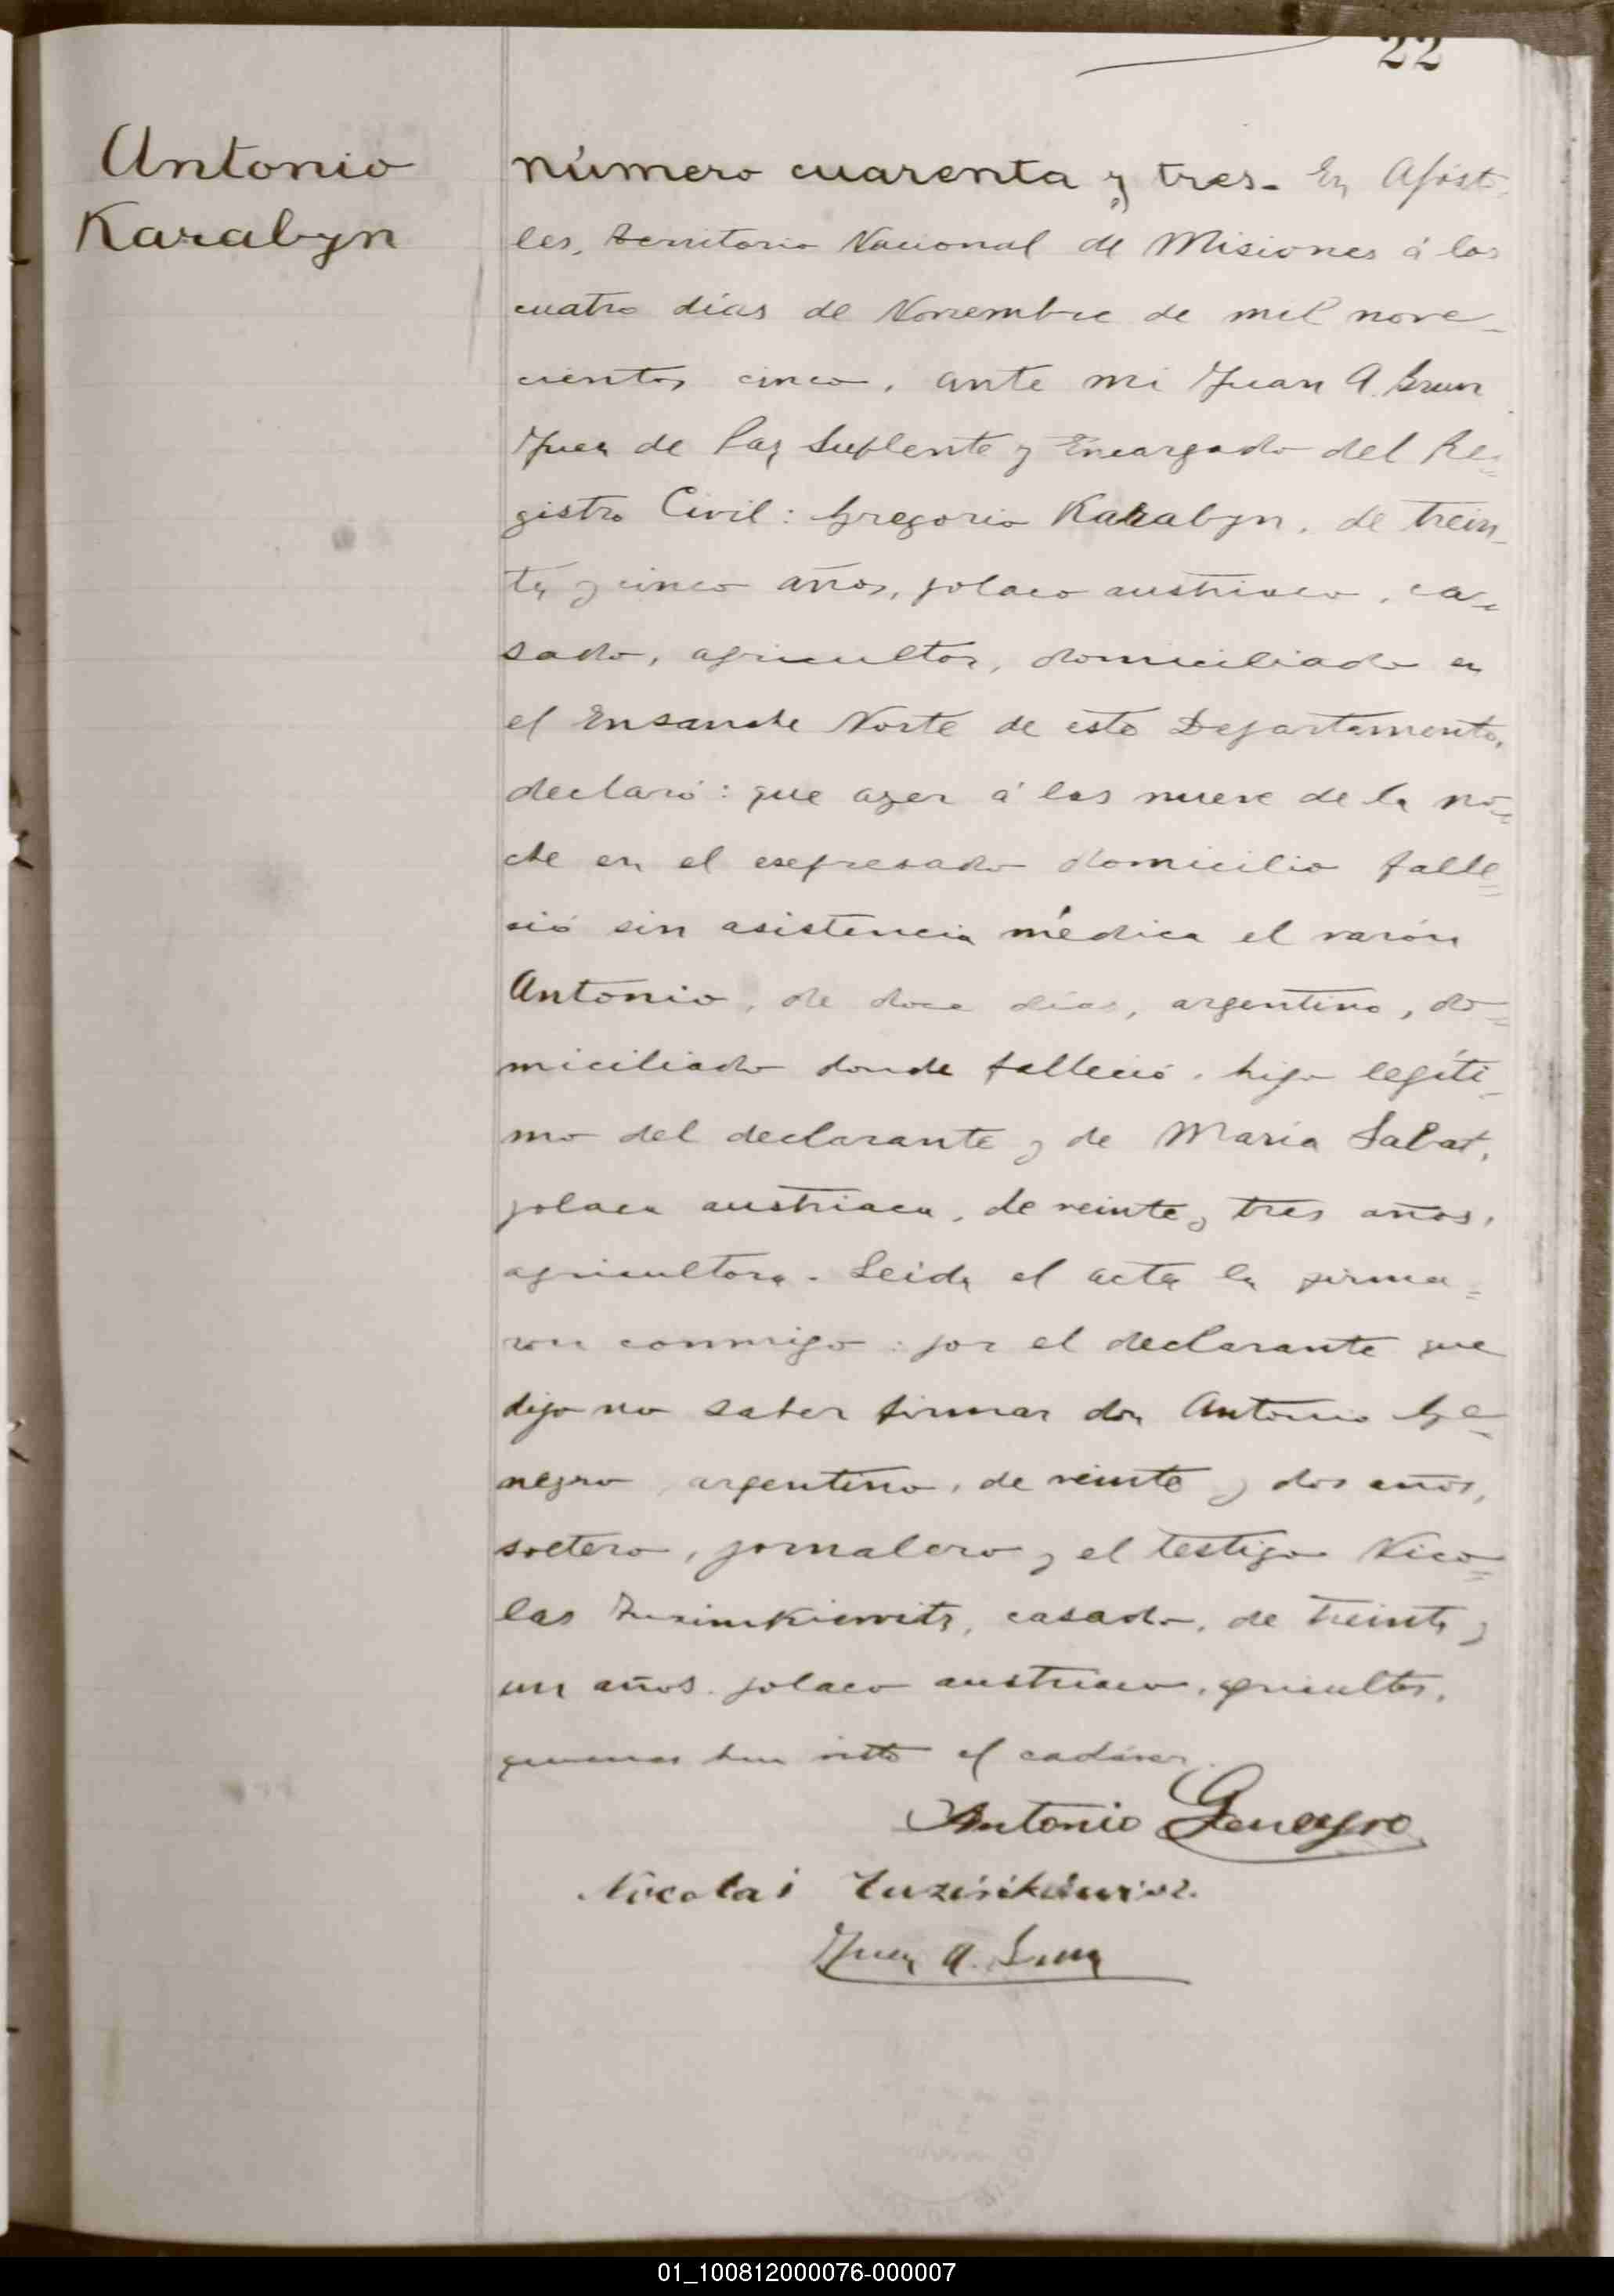 22
Antonio
Karabyn
Número cuarenta y tres. En Apósto
les, territorio Nacional de Misiones á los
cuatro días de Noviembre de mil nove_
cientos cinco, ante mi Juan A.
Juez de Paz Suplente y Encargado del Re=
gistro Civil: Gregorio Karabyn, de trein_
ta y cinco años, polaco austriaco, ca_
sado, agricultor, domiciliado en
el Ensanche Norte de este Departamento,
declaró: que ayer á las nueve de la no=
che en el expresado domicilio falle=
ció sin asistencia médica el varón
Antonio, de doce días, argentino, do=
miciliado donde falleció, hijo legíti_
mo del declarante y de María Sabat,
polaca austriaca, de veinte y tres años,
agricultora. Leida el acta la firma=
ron conmigo: por el declarante que
dijo no saber firmar don Antonio Ge_
negro, argentino, de veinte y dos años,
soltero, jornalero y el testigo Nico=
las casado, de treinta y
un años, polaco austriaco, agricultor,
quienes han visto el cadáver.
Antonio
Nicolai
Juan A.
01_100812000076-000007